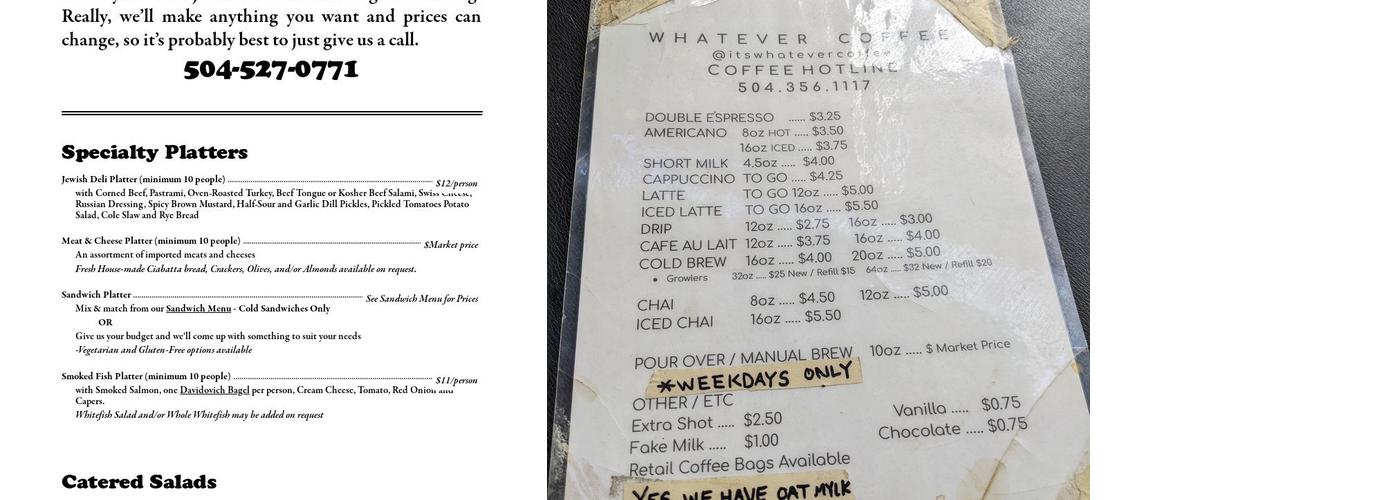 Really, we'll make anything you want and prices can
change, so it's probably best to just give us a call.
504-527-0771
Specialty Platters
Jewish Deli Platter (minimum 10 people) $12/person
with Corned Beef, Pastrami, Oven-Roasted Turkey, Beef Tongue or Kosher Beef Salami, Swiss Cheese,
Russian Dressing, Spicy Brown Mustard, Half-Sour and Garlic Dill Pickles, Pickled Tomatoes Potato
Salad, Cole Slaw and Rye Bread
Meat & Cheese Platter (minimum 10 people) $Market price
An assortment of imported meats and cheeses
Fresh House-made Ciabatta bread, Crackers, Olives, and/or Almonds available on request.
Sandwich Platter See Sandwich Menu for Prices
Mix & match from our Sandwich Menu - Cold Sandwiches Only
OR
Give us your budget and we'll come up with something to suit your needs
-Vegetarian and Gluten-Free options available
Smoked Fish Platter (minimum 10 people) $11/person
with Smoked Salmon, one Davidovich Bagel per person, Cream Cheese, Tomato, Red Onion and
Capers.
Whitefish Salad and/or Whole Whitefish may be added on request
Catered Salads
WHATEVER COFFEE
@itswhatevercoffee
COFFEE HOTLINE
504.356.1117
DOUBLE ESPRESSO ..... $3.25
AMERICANO 8oz HOT ..... $3.50
16oz ICED ..... $3.75
SHORT MILK 4.5oz ..... $4.00
CAPPUCCINO TO GO ..... $4.25
LATTE TO GO 12oz ..... $5.00
ICED LATTE TO GO 16oz ..... $5.50
DRIP 12oz ..... $2.75 16oz ..... $3.00
CAFE AU LAIT 12oz ..... $3.75 16oz ..... $4.00
COLD BREW 16oz ..... $4.00 20oz ..... $5.00
• Growlers 32oz ..... $25 New / Refill $15 64oz ..... $32 New / Refill $20
CHAI 8oz ..... $4.50 12oz ..... $5.00
ICED CHAI 16oz ..... $5.50
POUR OVER / MANUAL BREW 10oz ..... $ Market Price
*WEEKDAYS ONLY
OTHER / ETC
Extra Shot ..... $2.50 Vanilla ..... $0.75
Fake Milk ..... $1.00 Chocolate ..... $0.75
Retail Coffee Bags Available
YES WE HAVE OAT MYLK